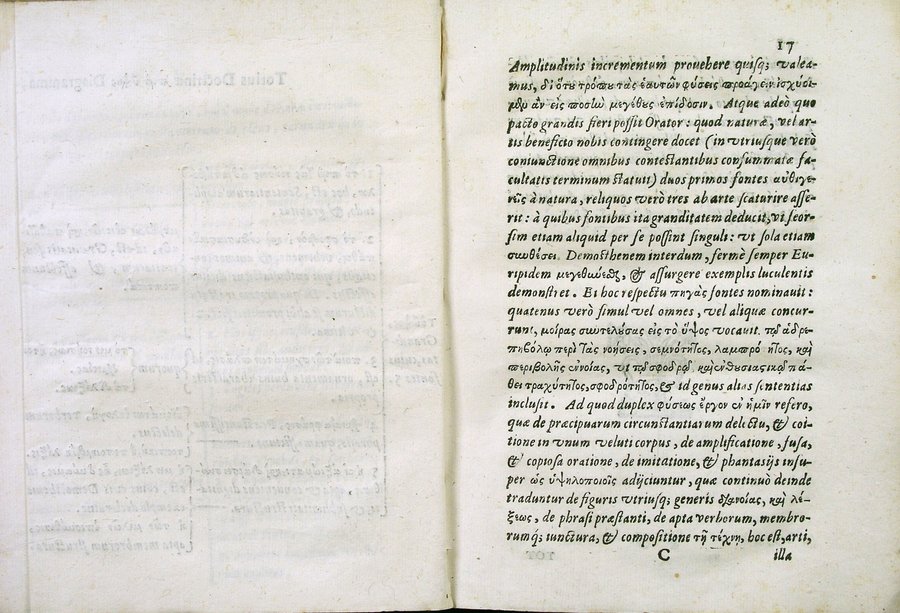 17
Amplitudinis incrementum prouehere quisq; valea-
mus, δι' ὅτου τρόπου τὰς ἑαυτῶν φύσεις προάγειν ἰσχύοι-
μεν ἂν εἰς ποσὴν μεγέθους ἐπίδοσιν. Atque adeò quo
pacto grandis fieri possit Orator: quod naturæ, vel ar-
tis beneficio nobis contingere docet (in vtriusque verò
coniunctione omnibus contestantibus consummatæ fa-
cultatis terminum statuit) duos primos fontes αὐθιγε-
νεῖς à natura, reliquos verò tres ab arte scaturire asse-
rit: à quibus fontibus ita granditatem deducit, vt seor-
sim etiam aliquid per se possint singuli: vt sola etiam
συνθέσει. Demosthenem interdum, fermè semper Eu-
ripidem μεγεθύνεσθ, & assurgere exemplis luculentis
demonstret. Et hoc respectu πηγὰς fontes nominauit:
quatenus verò simul vel omnes, vel aliquæ concur-
runt, μοίρας συντελούσας εἰς τὸ ὕψος vocauit. τῷ ἁδρε-
πηβόλῳ περὶ τὰς νοήσεις, σεμνότητος, λαμπρότητος, καὶ
περιβολῆς ἐννοίας, vt τῷ σφοδρῷ καὶ ἐνθουσιαστικῷ πά-
θει τραχύτητος, σφοδρότητος, & id genus alias sententias
inclusit. Ad quod duplex φύσεως ἔργον ἐν ἡμῖν refero,
quæ de præcipuarum circunstantiarum delectu, & coi-
tione in vnum veluti corpus, de amplificatione, fusa,
& copiosa oratione, de imitatione, & phantasijs insu-
per ὡς ὑψηλοποιοῖς adijciuntur, quæ continuò deinde
traduntur de figuris vtriusq; generis διανοίας, καὶ λέ-
ξεως, de phrasi præstanti, de apta verborum, membro-
rumq; iunctura, & compositione τῇ τέχνῃ, hoc est, arti,
C illa